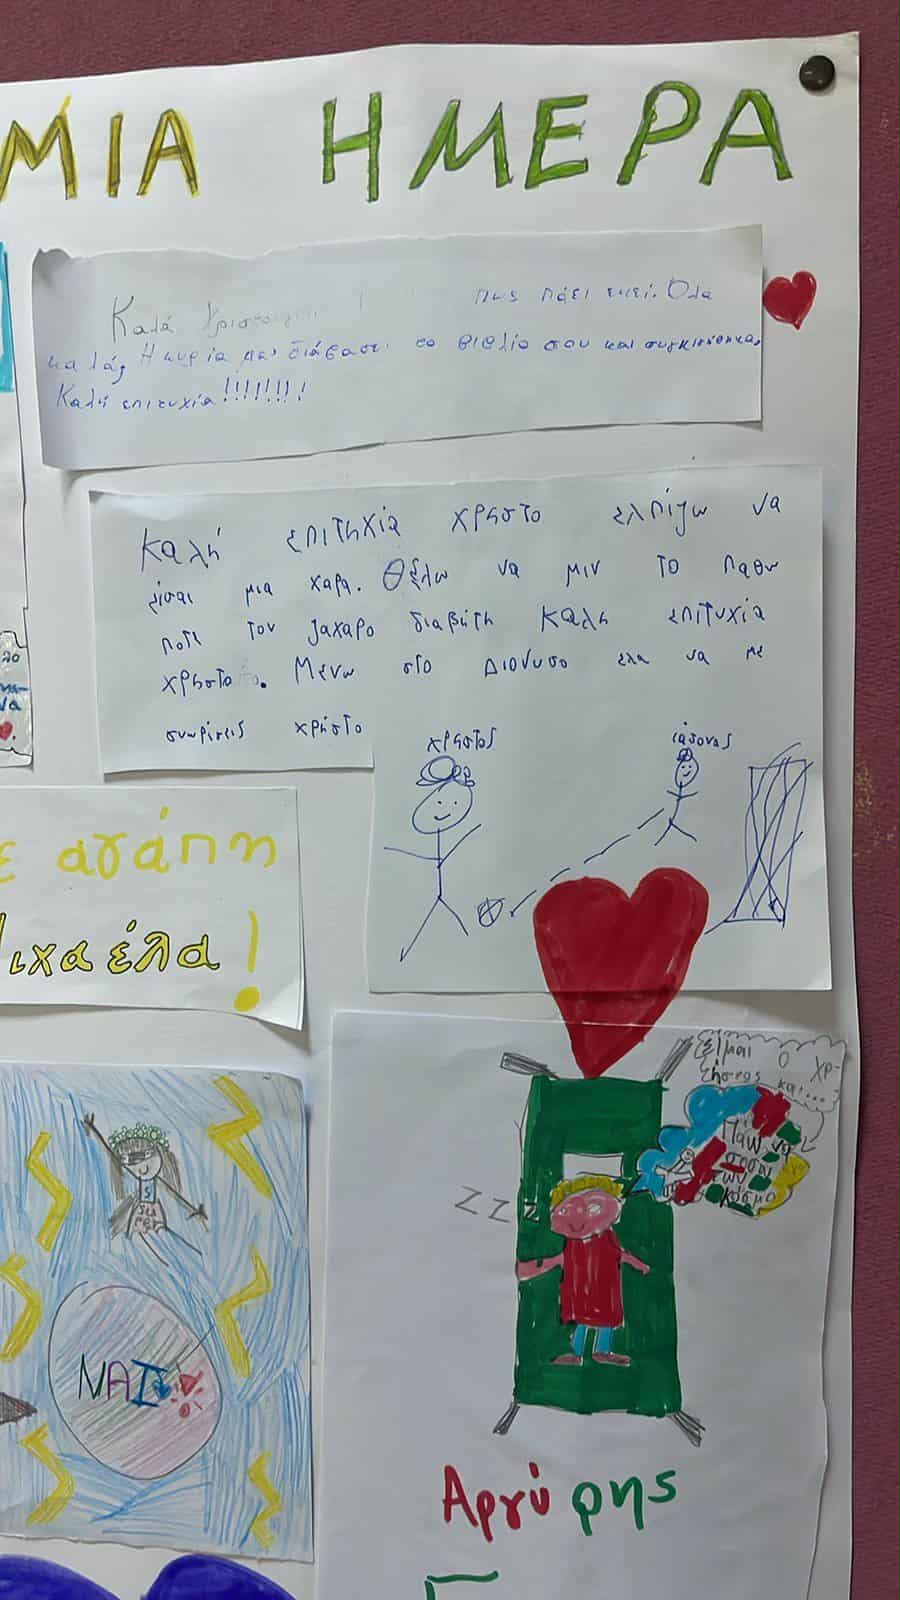 ΜΙΑ ΗΜΕΡΑ
Καλά πως πάει εκεί. Όλα
καλά; Η κυρία μας διάβασε το βιβλίο σου και συγκινήθηκα.
Καλή επιτυχία!!!!!!!!
Καλή επιτηχία χρηστο ελπίζω να
είσαι μια χαρα. Θέλω να μιν το παθω
ποτε τον ζαχαρο διαβήτη καλη επιτυχία
χρηστο. Μένω στο Διονυσο ελα να με
γνωρίσεις χρήστο
χρηστος
ιάσονας
αγάπη
ιχαέλα!
Είμαι ο Χρ-
ήστος και...
Πάω να
σώσω
τον
κόσμο
Z Z Z
ΝΑΙ
Αργύρης